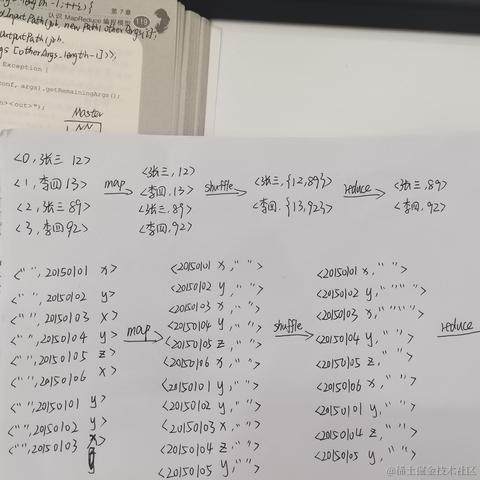 第 7 章
认识 MapReduce 编程模型 119
InputPath(job, new Path(otherArgs[i]);
OutputPath(job,
gs [otherArgs.length-1]));
Exception {
conf, args).getRemainingArgs();
n><out>");
Master
NN
<0,张三 12>
<1,李四 13>
<2,张三 89>
<3,李四 92>
map
<张三,12>
<李四,13>
<张三,89>
<李四,92>
shuffle
<张三,{12,89}>
<李四,{13,92}>
reduce
<张三,89>
<李四,92>
<" ",20150101 x>
<" ",20150102 y>
<" ",20150103 x>
<" ",20150104 y>
<" ",20150105 z>
<" ",20150106 x>
<" ",20150101 y>
<" ",20150102 y>
<" ",20150103 x>
y
map
<20150101 x," ">
<20150102 y," ">
<20150103 x," ">
<20150104 y," ">
<20150105 z," ">
<20150106 x," ">
<20150101 y," ">
<20150102 y," ">
<20150103 x," ">
<20150104 z," ">
<20150105 y," ">
shuffle
<20150101 x," ">
<20150102 y," "" ">
<20150103 x," "" ">
<20150104 y," ">
<20150105 z," ">
<20150106 x," ">
<20150101 y," ">
<20150104 z," ">
<20150105 y," ">
reduce
@稀土掘金技术社区